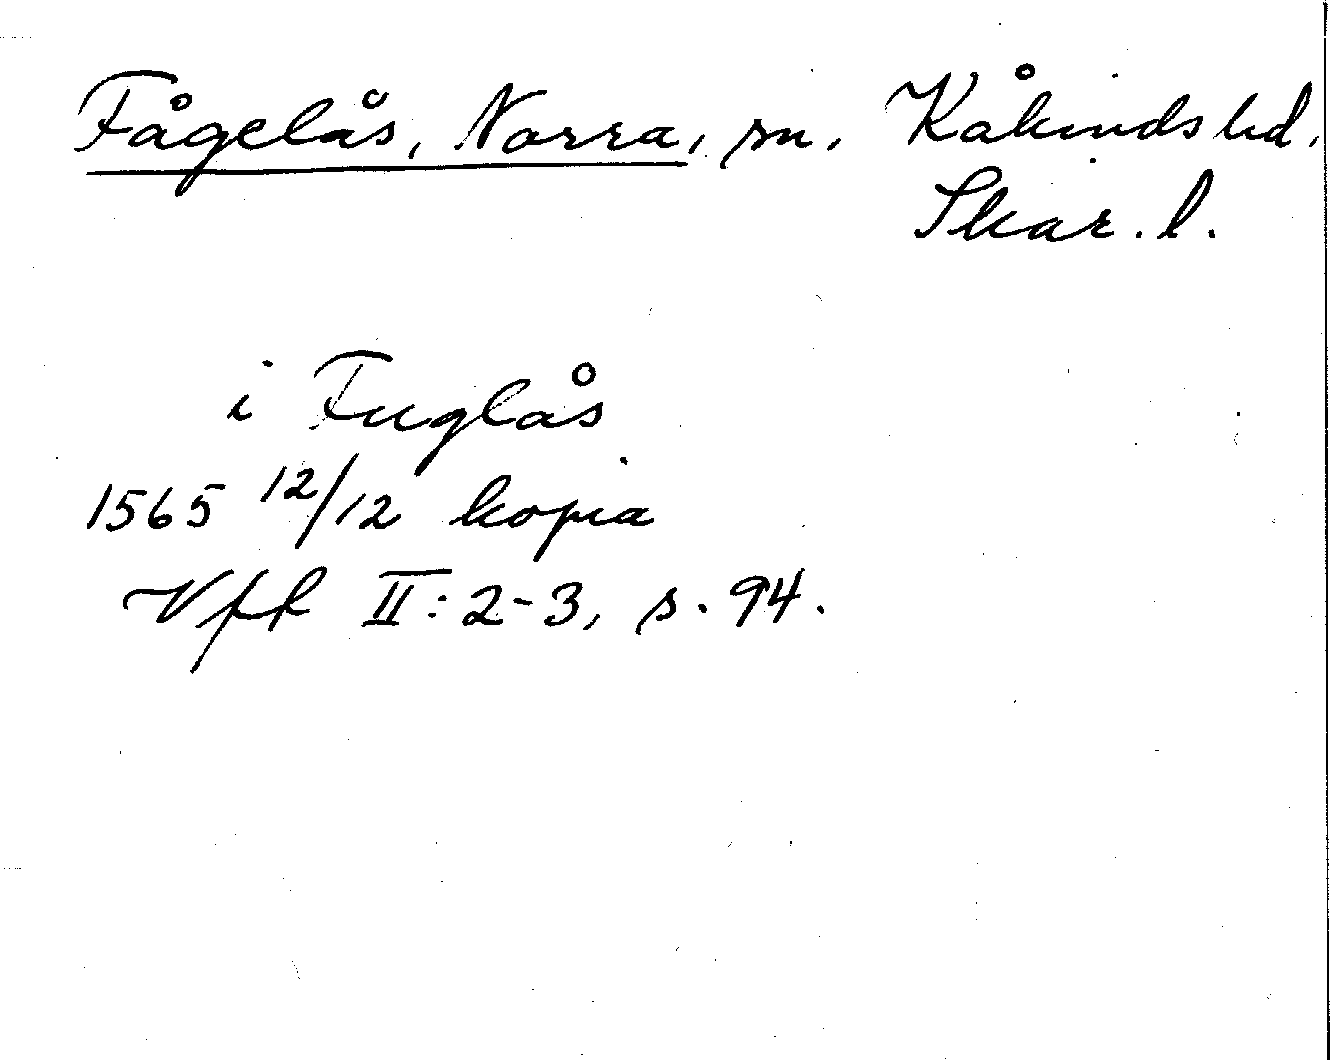 Fågelås, Norra, sn. Kåkinds hd,
Skar. l.
i Fuglås
1565 12/12 kopia
Vfk II: 2-3, s. 94.